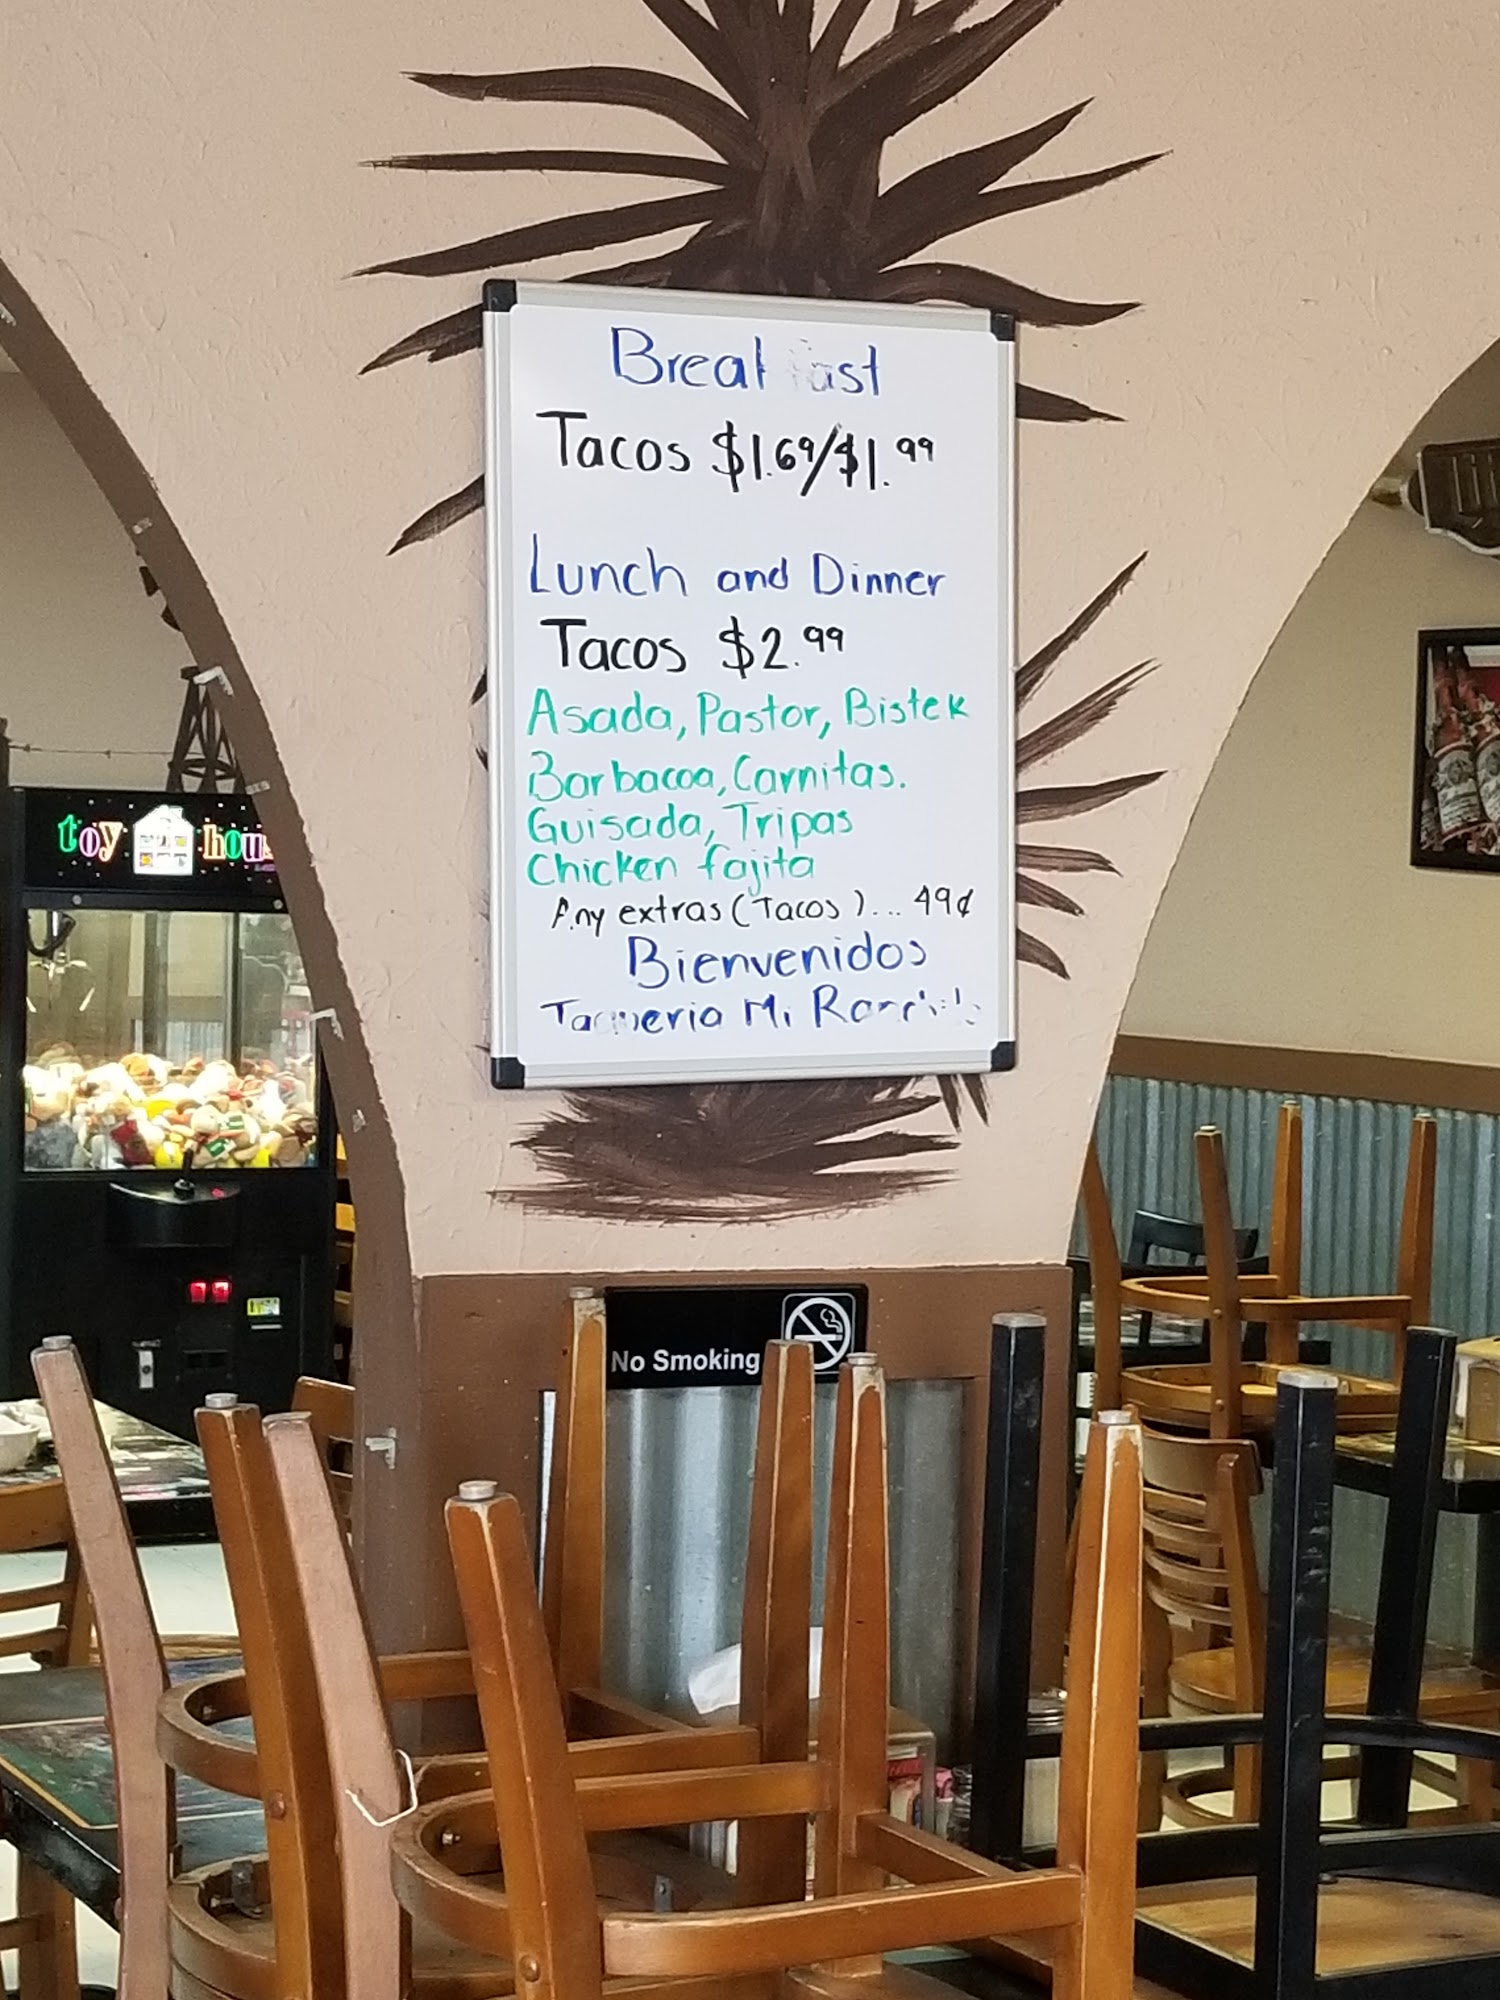 Breakfast
Tacos $1.69/$1.99
Lunch and Dinner
Tacos $2.99
Asada, Pastor, Bistek
Barbacoa, Carnitas.
Guisada, Tripas
Chicken fajita
Any extras (Tacos)... 49¢
Bienvenidos
Taqueria Mi
toy hous
No Smoking